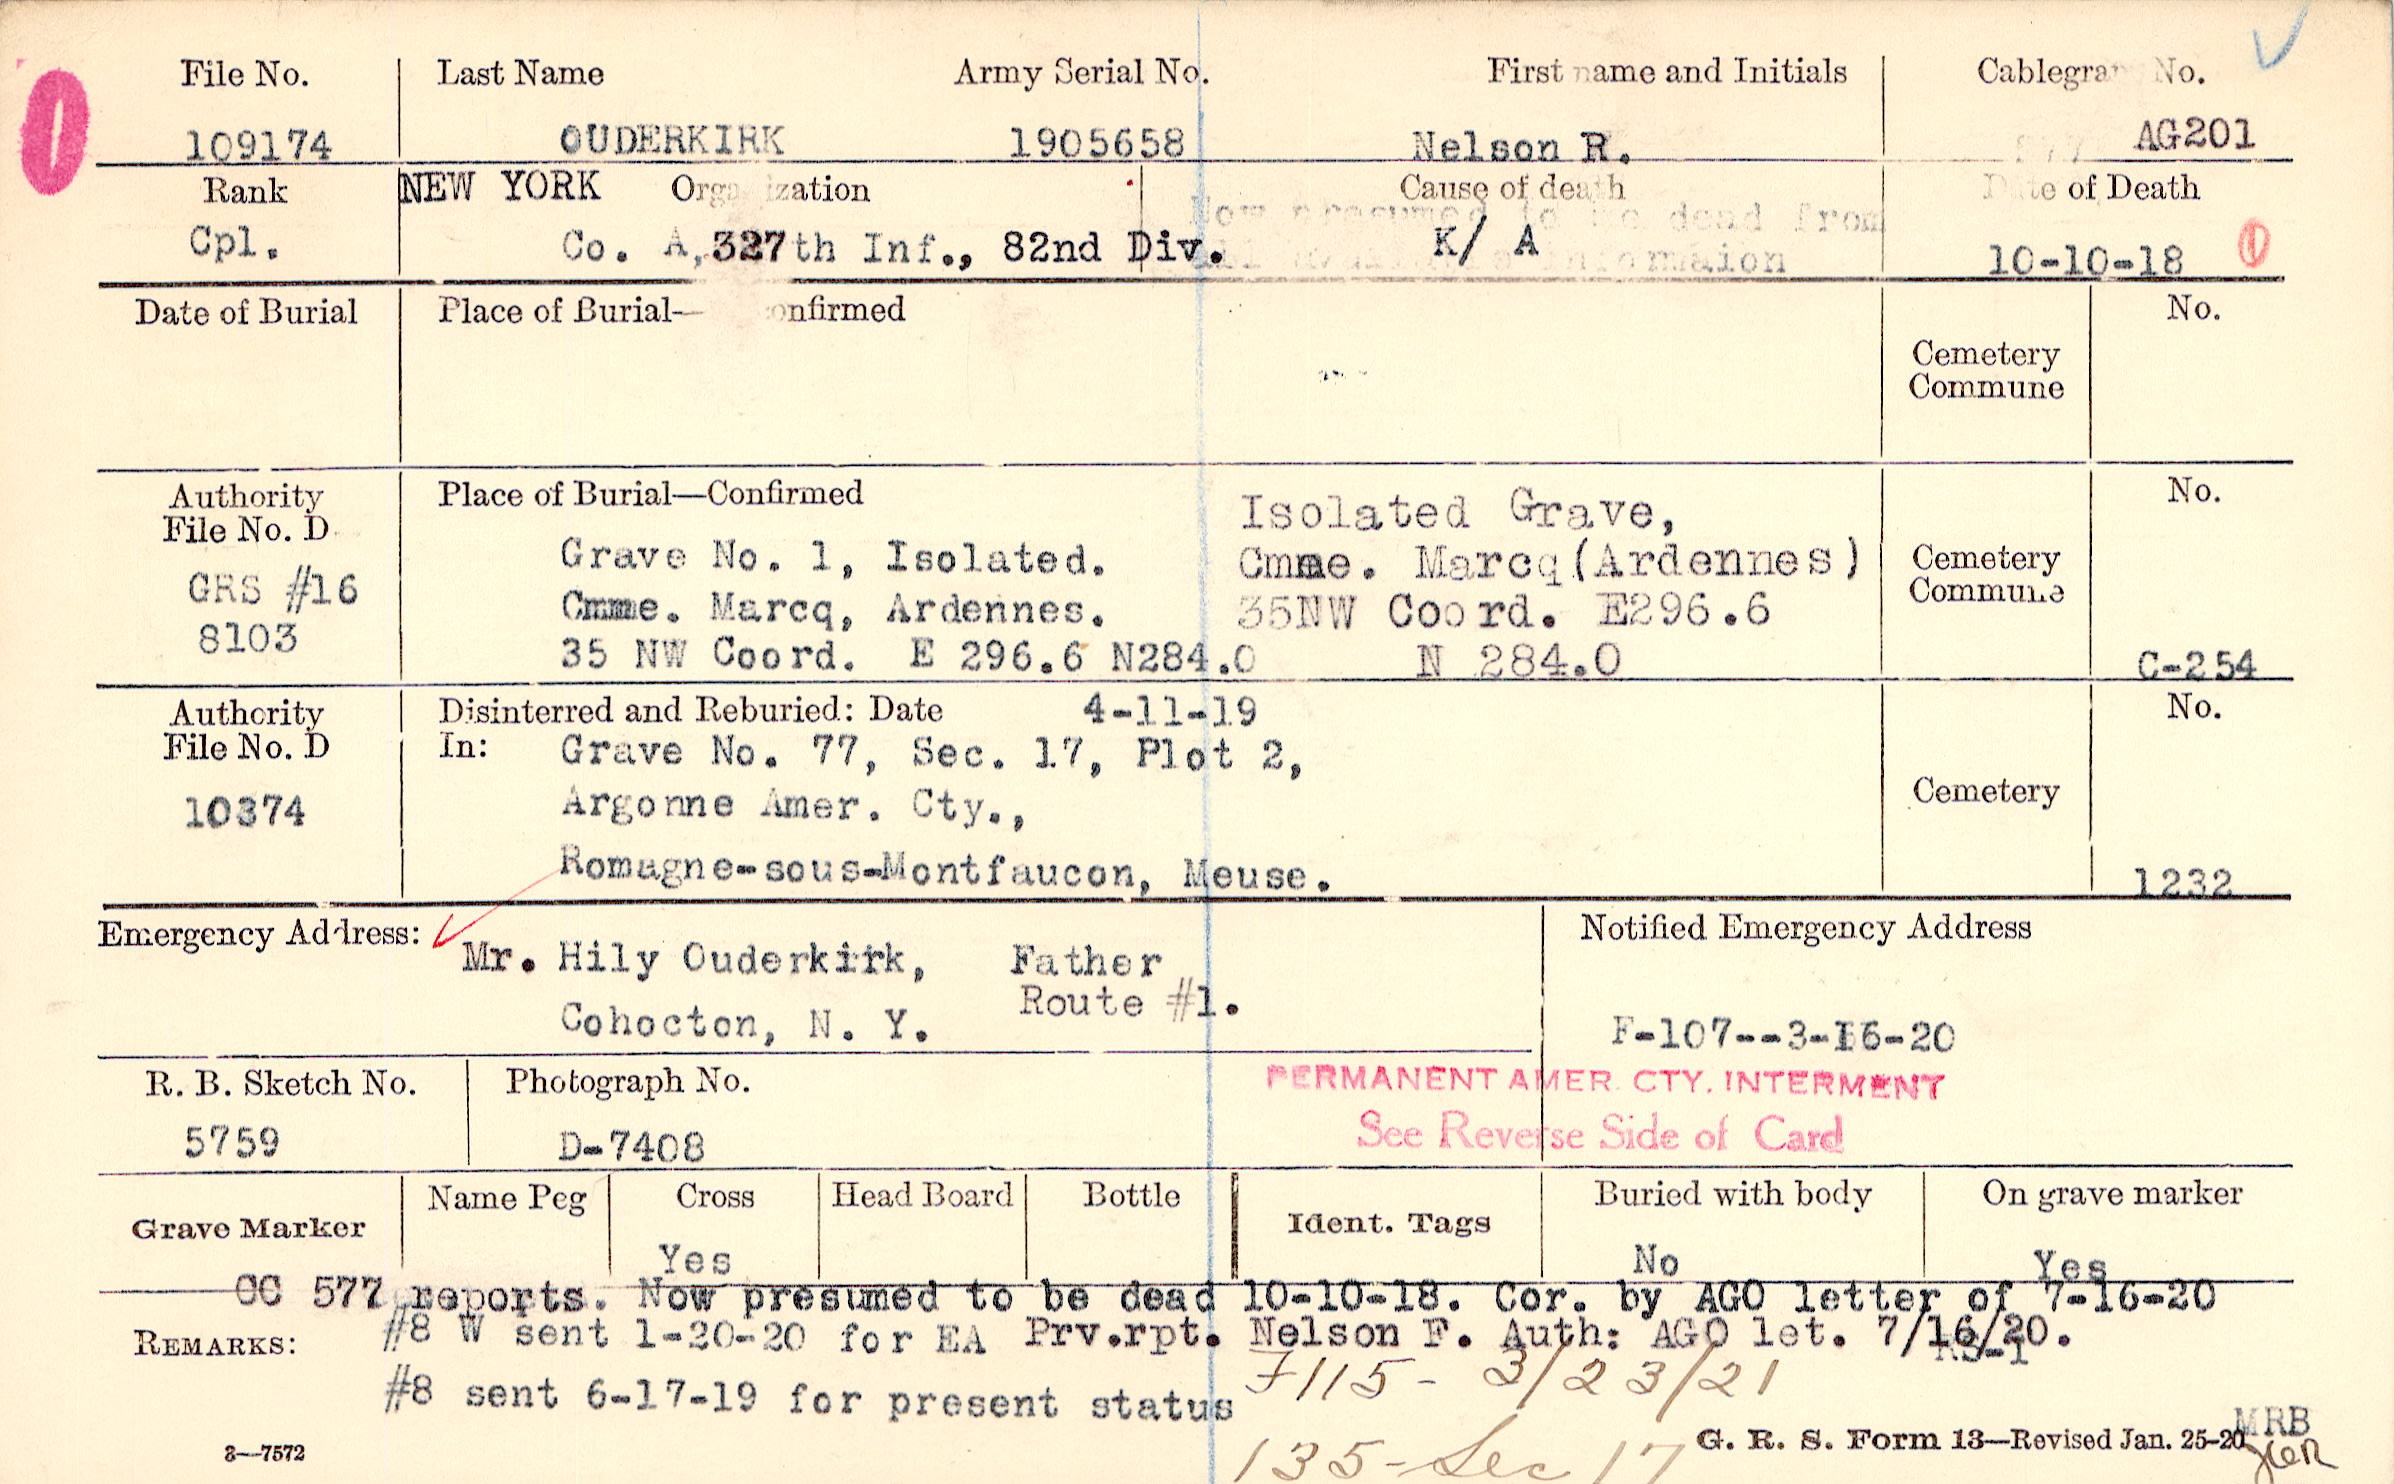 File No. Last Name Army Serial No. First name and Initials Cablegram No.
109174 OUDERKIRK 1905658 Nelson R. AG201
Rank NEW YORK Organization Cause of death Date of Death
Now presumed to be dead from
Cpl. Co. A, 327th Inf., 82nd Div. K/ A 10-10-18
all available informaion
Date of Burial Place of Burial— confirmed No.
Cemetery
Commune
Authority Place of Burial—Confirmed Isolated Grave, No.
File No. D
GRS #16 Grave No. 1, Isolated. Cmme. Marcq(Ardennes) Cemetery
Commune
8103 Cmme. Marcq, Ardennes. 35NW Coord. E296.6
35 NW Coord. E 296.6 N284.0 N 284.0 C-254
Authority Disinterred and Reburied: Date 4-11-19 No.
File No. D In: Grave No. 77, Sec. 17, Plot 2,
10374 Argonne Amer. Cty., Cemetery
Romagne-sous-Montfaucon, Meuse. 1232
Emergency Address: Notified Emergency Address
Mr. Hily Ouderkirk, Father
Route #1.
Cohocton, N. Y. F-107--3-16-20
R. B. Sketch No. Photograph No. PERMANENT AMER. CTY. INTERMENT
5759 D-7408 See Reverse Side of Card
Grave Marker Name Peg Cross Head Board Bottle Ident. Tags Buried with body On grave marker
Yes No Yes
CC 577 reports. Now presumed to be dead 10-10-18. Cor. by AGO letter of 7-16-20
REMARKS: #8 W sent 1-20-20 for EA Prv.rpt. Nelson F. Auth: AGO let. 7/16/20.
#8 sent 6-17-19 for present status 7115- 3/23/21
135-Sec 17 MRB
3—7572 G. R. S. Form 13—Revised Jan. 25-20